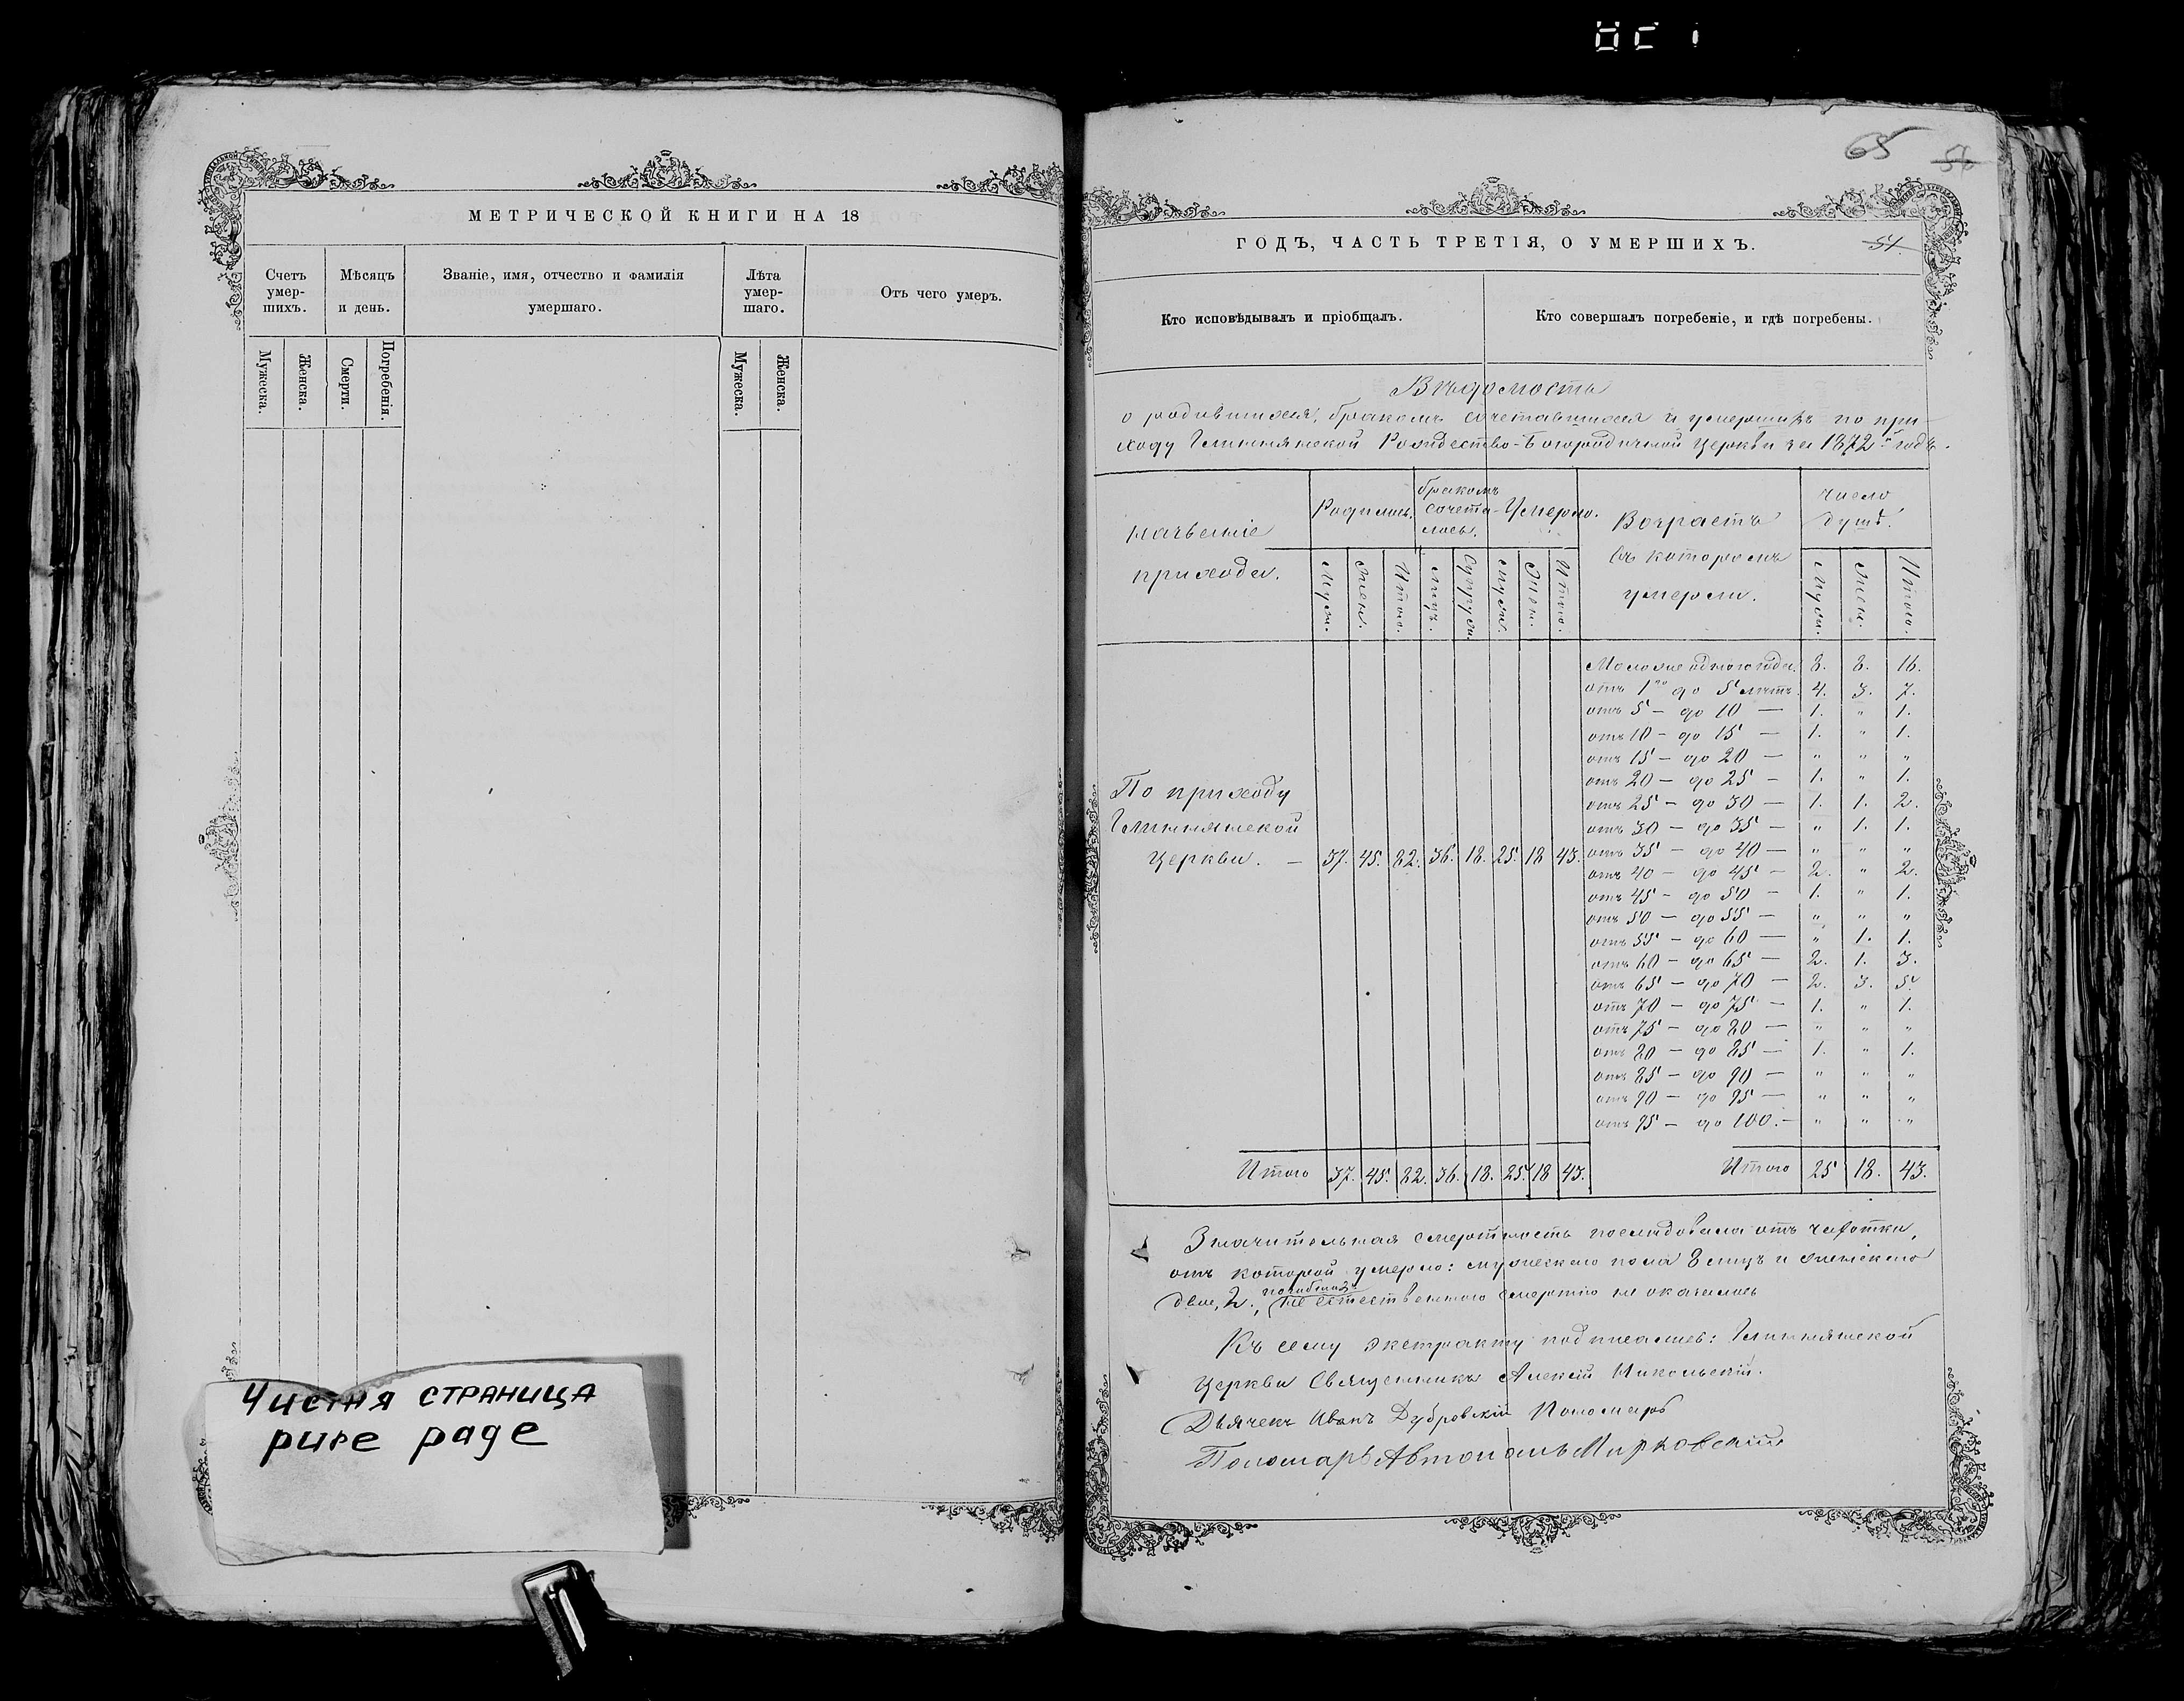 65 56
МЕТРИЧЕСКОЙ КНИГИ НА 18
Счетъ умер-шихъ.
Мѣсяцъ и день.
Званіе, имя, отчество и фамилія умершаго.
Лѣта умер-шаго.
Отъ чего умеръ.
Мужеска. Женска. Смерти. Погребенія. Мужеска. Женска.
Чистая страница
pure page
ГОДЪ, ЧАСТЬ ТРЕТІЯ, О УМЕРШИХЪ. 54.
Кто исповѣдывалъ и пріобщалъ.
Кто совершалъ погребеніе, и гдѣ погребены.
Вѣдомость
о родившихся, бракомъ сочетавшихся и умершихъ по при-
ходу Глинянской Рождество-Богородичной Церкви за 1872й годъ.
Названіе прихода.
Родилось.
бракомъ сочета-лось.
Умерло.
Возрастъ въ которомъ умерли.
Число душъ.
Муж. Жен. Итого. Лицъ. Супруж. Муж. Жен. Итого. Муж. Жен. Итого.
Моложе одного года. 8. 8. 16.
отъ 1го до 5 лѣтъ. 4. 3. 7.
отъ 5 — до 10 — 1. " 1.
отъ 10 — до 15 — 1. " 1.
отъ 15 — до 20 — " " "
отъ 20 — до 25 — 1. " 1.
отъ 25 — до 30 — 1. 1. 2.
отъ 30 — до 35 — " 1. 1.
отъ 35 — до 40 — " " "
отъ 40 — до 45 — 2. " 2.
отъ 45 — до 50 — 1. " 1.
отъ 50 — до 55 — " " "
отъ 55 — до 60 — " 1. 1.
отъ 60 — до 65 — 2. 1. 3.
отъ 65 — до 70 — 2. 3. 5.
отъ 70 — до 75 — 1. " 1.
отъ 75 — до 80 — " " "
отъ 80 — до 85 — 1. " 1.
отъ 85 — до 90 — " " "
отъ 90 — до 95 — " " "
отъ 95 — до 100. — " " "
По приходу
Глинянской
Церкви. — 37. 45. 82. 36. 18. 25. 18 43.
Итого 37. 45. 82. 36. 18. 25. 18 43. Итого 25 18. 43.
Значительная смертность послѣдовала отъ чахотки,
отъ которой умерло: мужескаго пола 8 лицъ и женскаго
двѣ, 2., погибшихъ не естественною смертію не оказалось
Къ сему экстракту подписались: Глинянской
Церкви Священникъ Алексій Никольскій.
Дьячекъ Иванъ Дубровскій Пономарь
Пономарь Автономъ Мирковскій